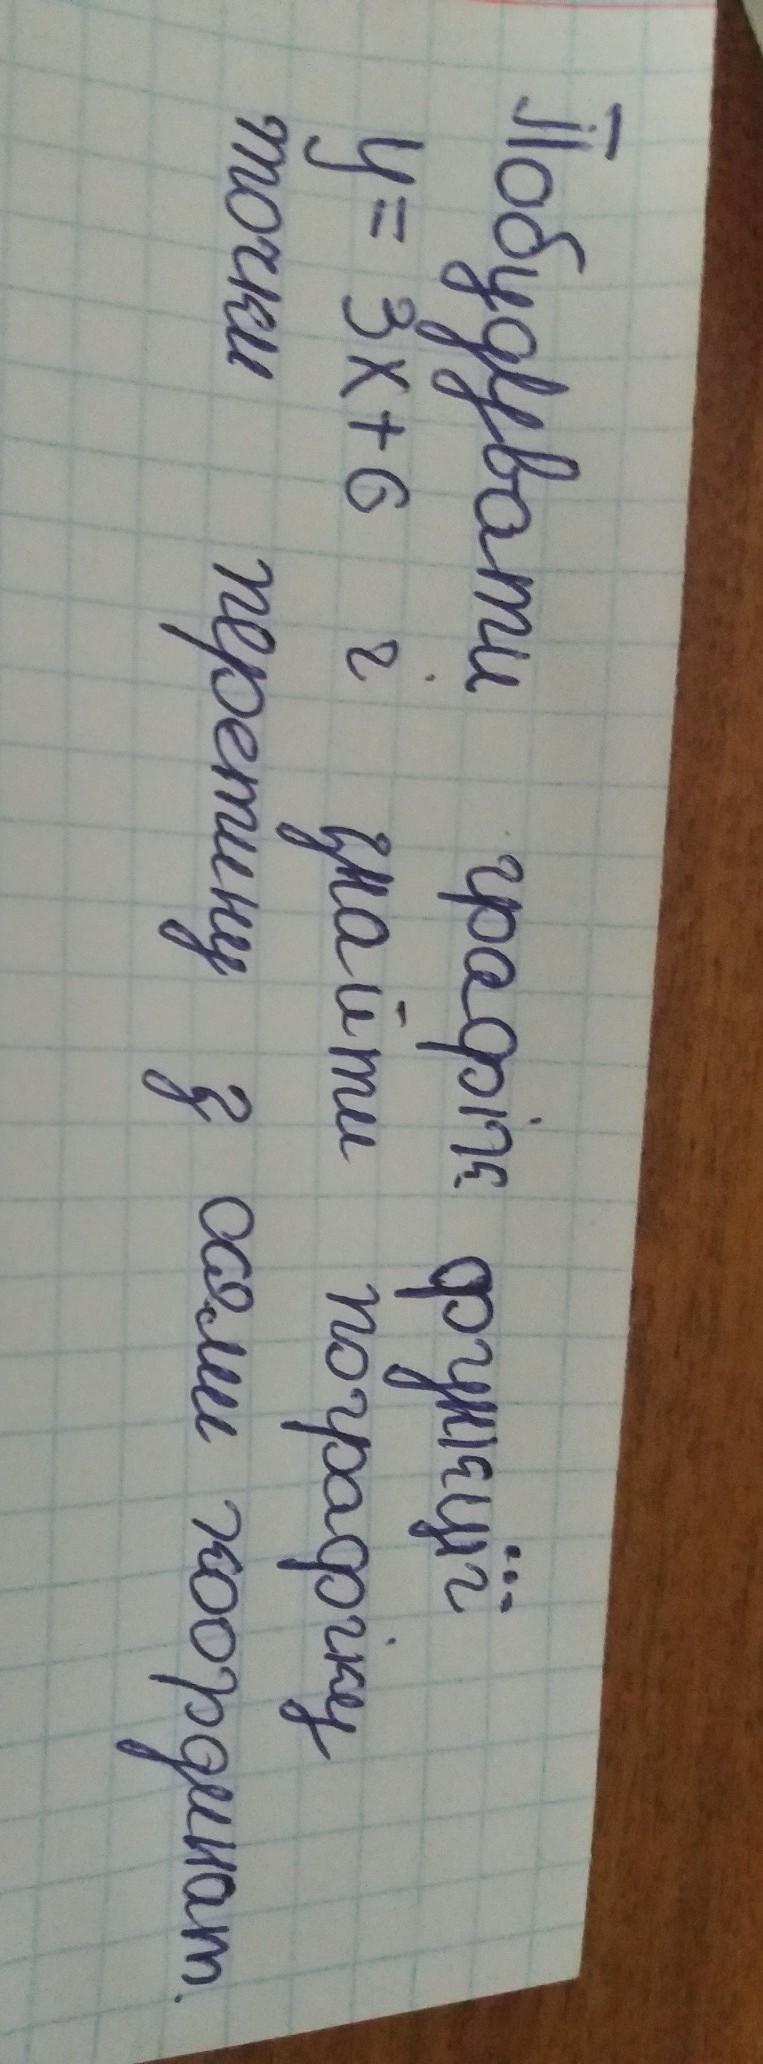 Побудувати графік функції
y = 3x + 6 і знайти пографіку
точки перетину з осями координат.